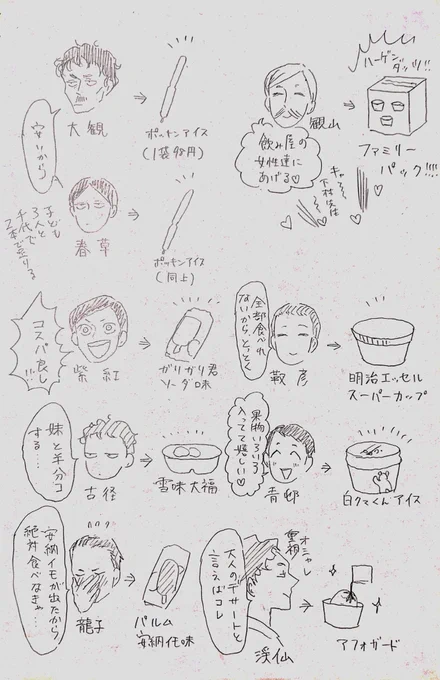 安いから
大観
ポッキンアイス
(1袋98円)
ハーゲン
ダッツ!!
観山
飲み屋の
女性達に
あげる♡
ファミリー
パック!!!!
キャーッ
下村先生
子ども
3人と
千代で
2本で足りる
春草
ポッキンアイス
(同上)
コスパ良し
!!!
紫紅
ガリガリ君
ソーダ味
全部食べれ
ないから、とっとく
靫彦
明治エッセル
スーパーカップ
妹と半分コ
する…
古径
雪味大福
果物いろいろ
入ってて嬉しい♡
青邨
白クマくんアイス
安納イモが出たから
絶対食べなきゃ…
龍子
パルム
安納花味
大人のデザートと
言えばコレ
オシャレ
重視
渓仙
アフォガード